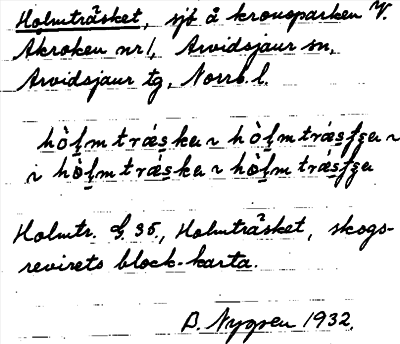 Holmträsket, sjö å kronoparken V.
Akroken nr 1, Arvidsjaur sn,
Arvidsjaur tg, Norrb. l.
hòl̥m træ̀skɐ ~ hòl̥m træ̀sʃɐ ~
~ hòl̥m træ̀skɐ ~ hòl̥m træ̀sʃɐ
Holmtr. G. 35, Holmträsket, skogs-
revirets block-karta.
B. Nygren 1932.